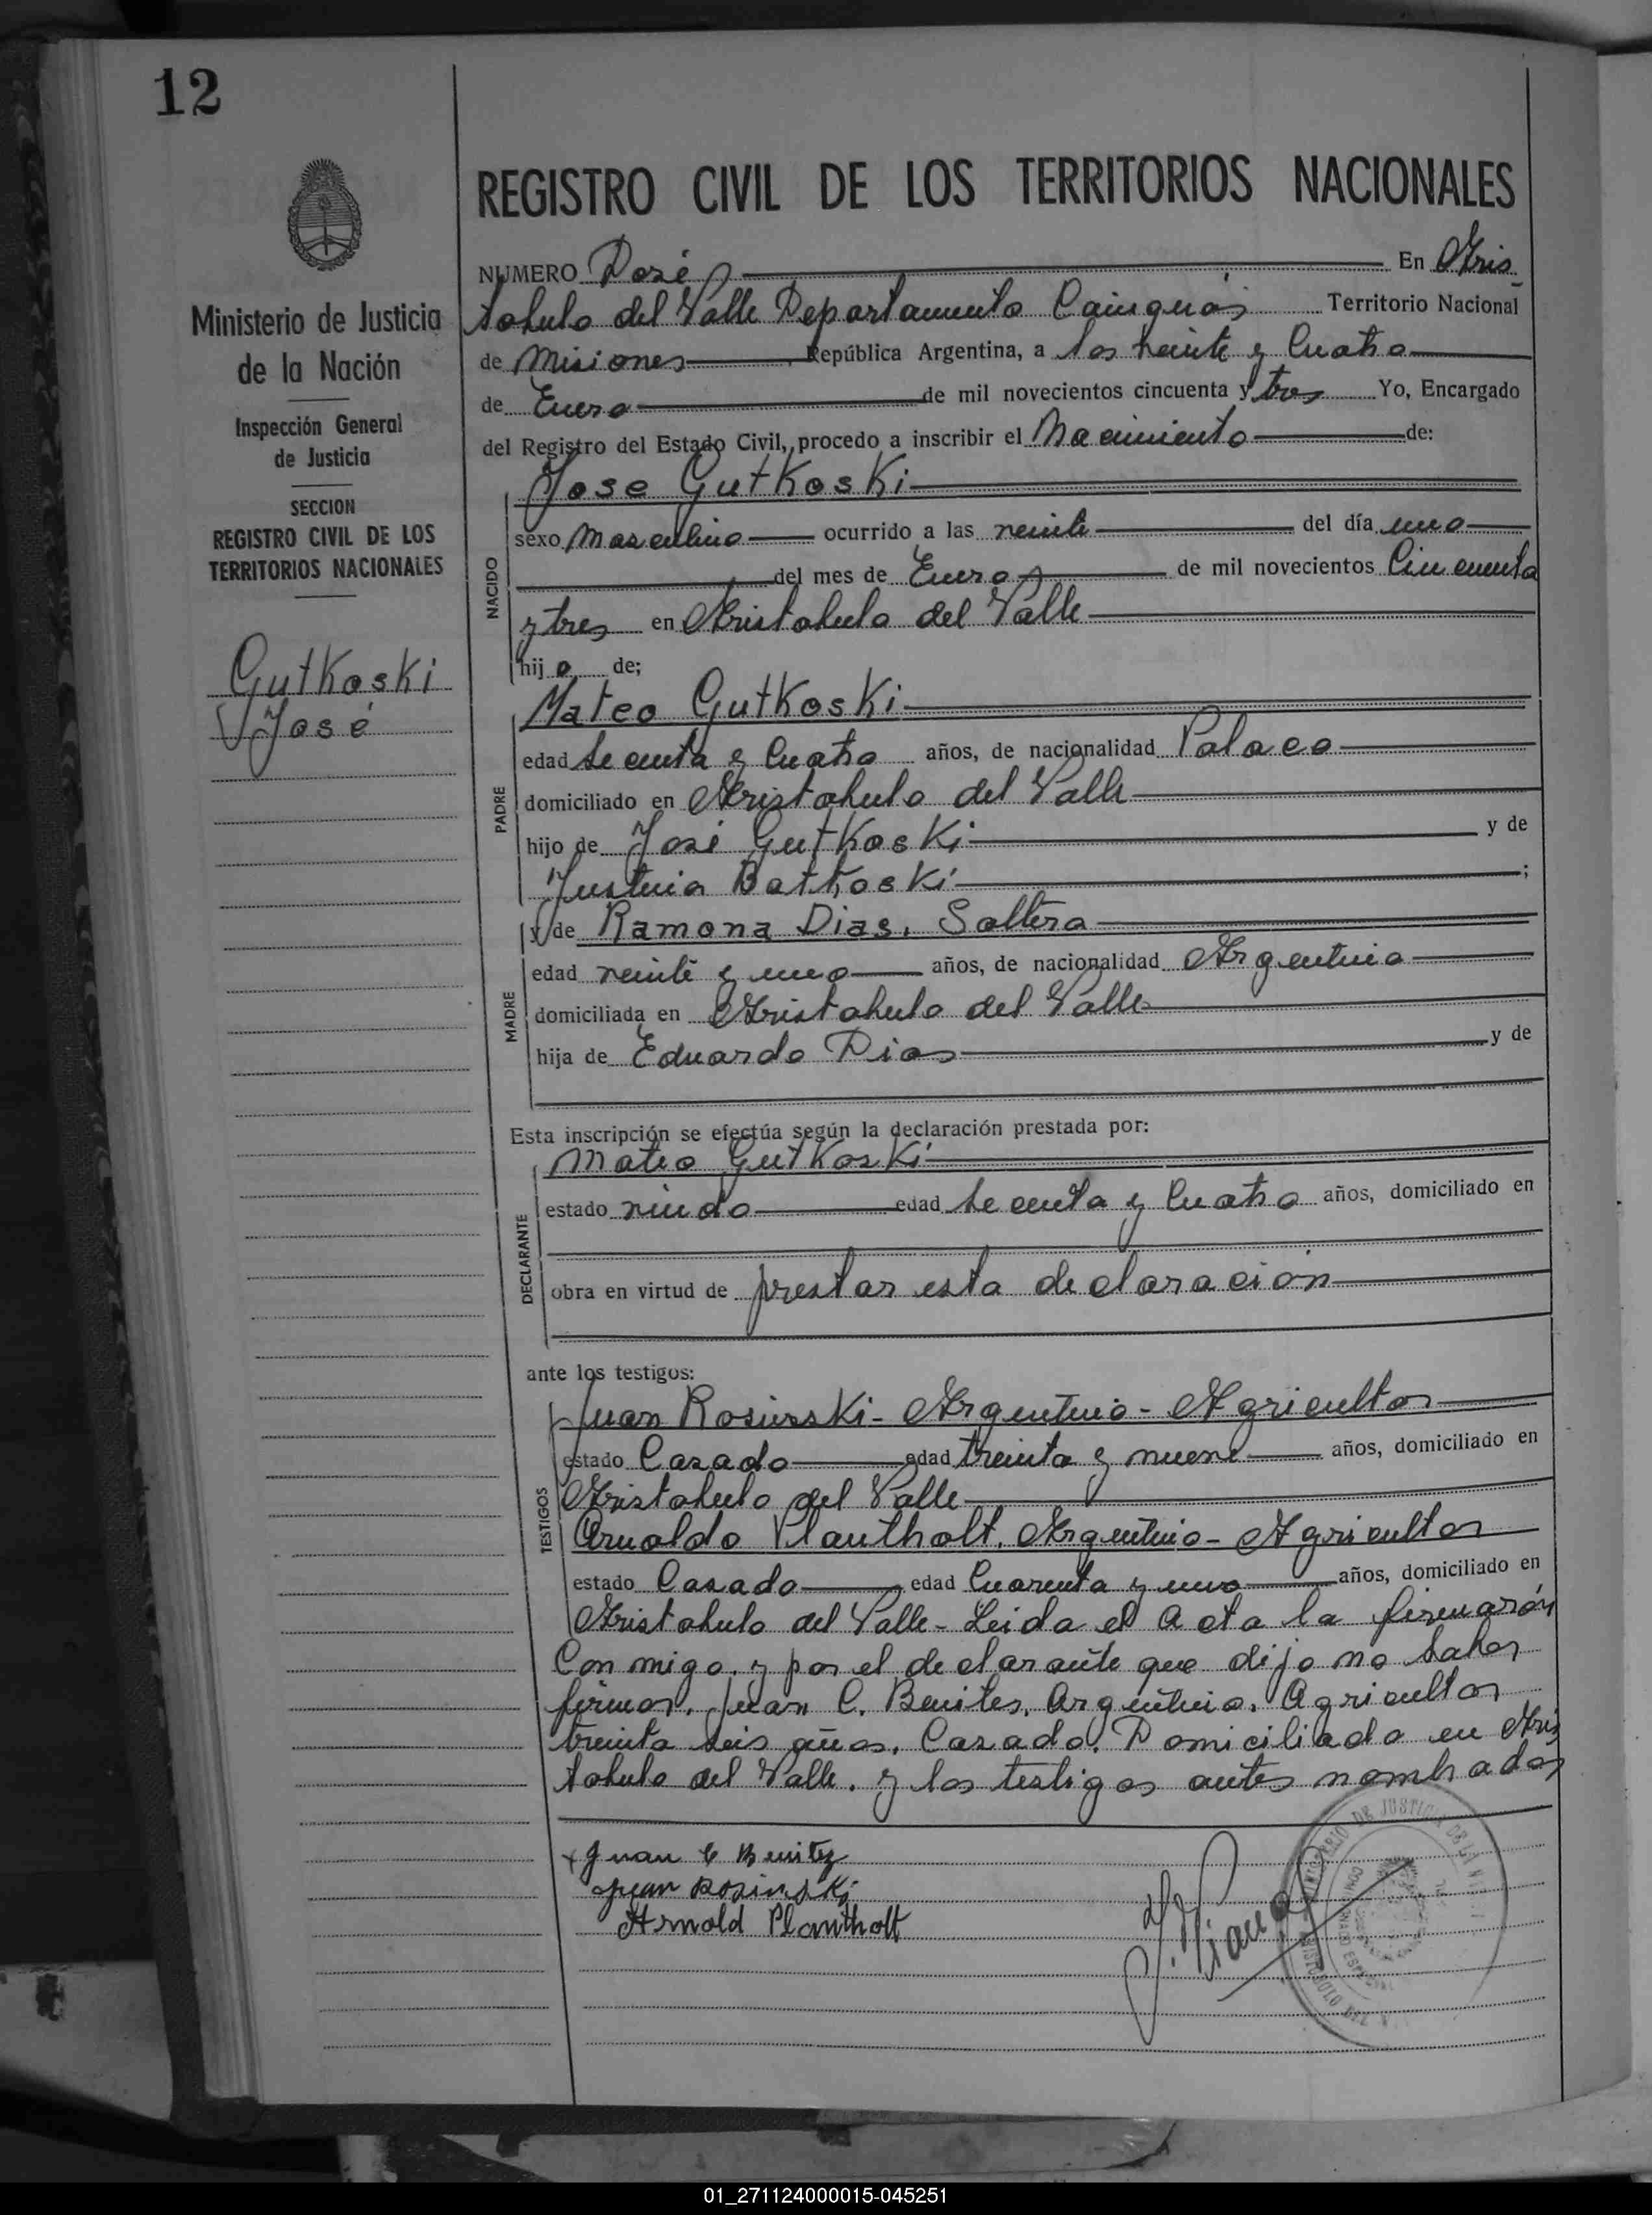 12
REGISTRO CIVIL DE LOS TERRITORIOS NACIONALES
Ministerio de Justicia
de la Nación
Inspección General
de Justicia
SECCION
REGISTRO CIVIL DE LOS
TERRITORIOS NACIONALES
Gutkoski
José
NUMERO Dose En Aris
tobulo del Valle Departamento Cainguás Territorio Nacional
de Misiones, República Argentina, a los veinte y Cuatro
de Enero de mil novecientos cincuenta y tres Yo, Encargado
del Registro del Estado Civil, procedo a inscribir el Nacimiento de:
Jose Gutkoski
NACIDO
sexo Masculino ocurrido a las veinte del día uno
del mes de Enero de mil novecientos Cincuenta
y tres en Aristobulo del Valle
hijo de;
Mateo Gutkoski
PADRE
edad Secenta y Cuatro años, de nacionalidad Polaco
domiciliado en Aristobulo del Valle
hijo de José Gutkoski y de
Justina Batkoski;
y de Ramona Dias, Soltera
MADRE
edad veinte y uno años, de nacionalidad Argentina
domiciliada en Aristobulo del Valle
hija de Eduardo Dias y de
Esta inscripción se efectúa según la declaración prestada por:
Mateo Gutkoski
DECLARANTE
estado viudo edad Secenta y Cuatro años, domiciliado en
obra en virtud de prestar esta declaración
ante los testigos:
Juan Rosinski - Argentino - Agricultor
TESTIGOS
estado Casado edad treinta y nueve años, domiciliado en
Aristobulo del Valle
Arnoldo Plantholt. Argentino - Agricultor
estado Casado edad Cuarenta y uno años, domiciliado en
Aristobulo del Valle - Leida el Acta la firmarón
Con migo. y por el declarante que dijo no Saber
firmar. Juan C. Benites, Argentino, Agricultor
treinta seis años, Casado, Domiciliado en Aris
tobulo del Valle. y los testigos antes nombrados
Juan C Benitez
Juan Rosinski
Arnold Plantholt
01_271124000015-045251